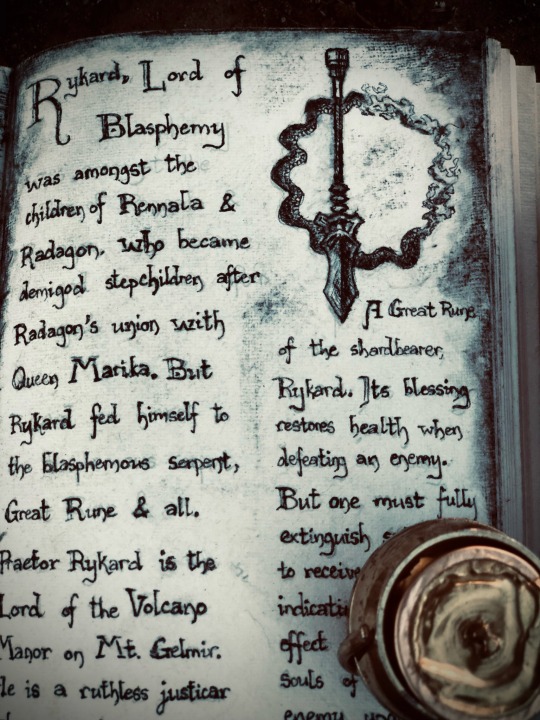 Rykard, Lord of
Blasphemy
was amongst the
children of Rennala &
Radagon. who became
demigod stepchildren after
Radagon's union with
Queen Marika. But
Rykard fed himself to
the blasphemous serpent,
Great Rune & all.
Praetor Rykard is the
Lord of the Volcano
Manor on Mt. Gelmir.
He is a ruthless justicar
A Great Rune
of the shardbearer,
Rykard. Its blessing
restores health when
defeating an enemy.
But one must fully
extinguish
to receive
effect
souls of
enemy